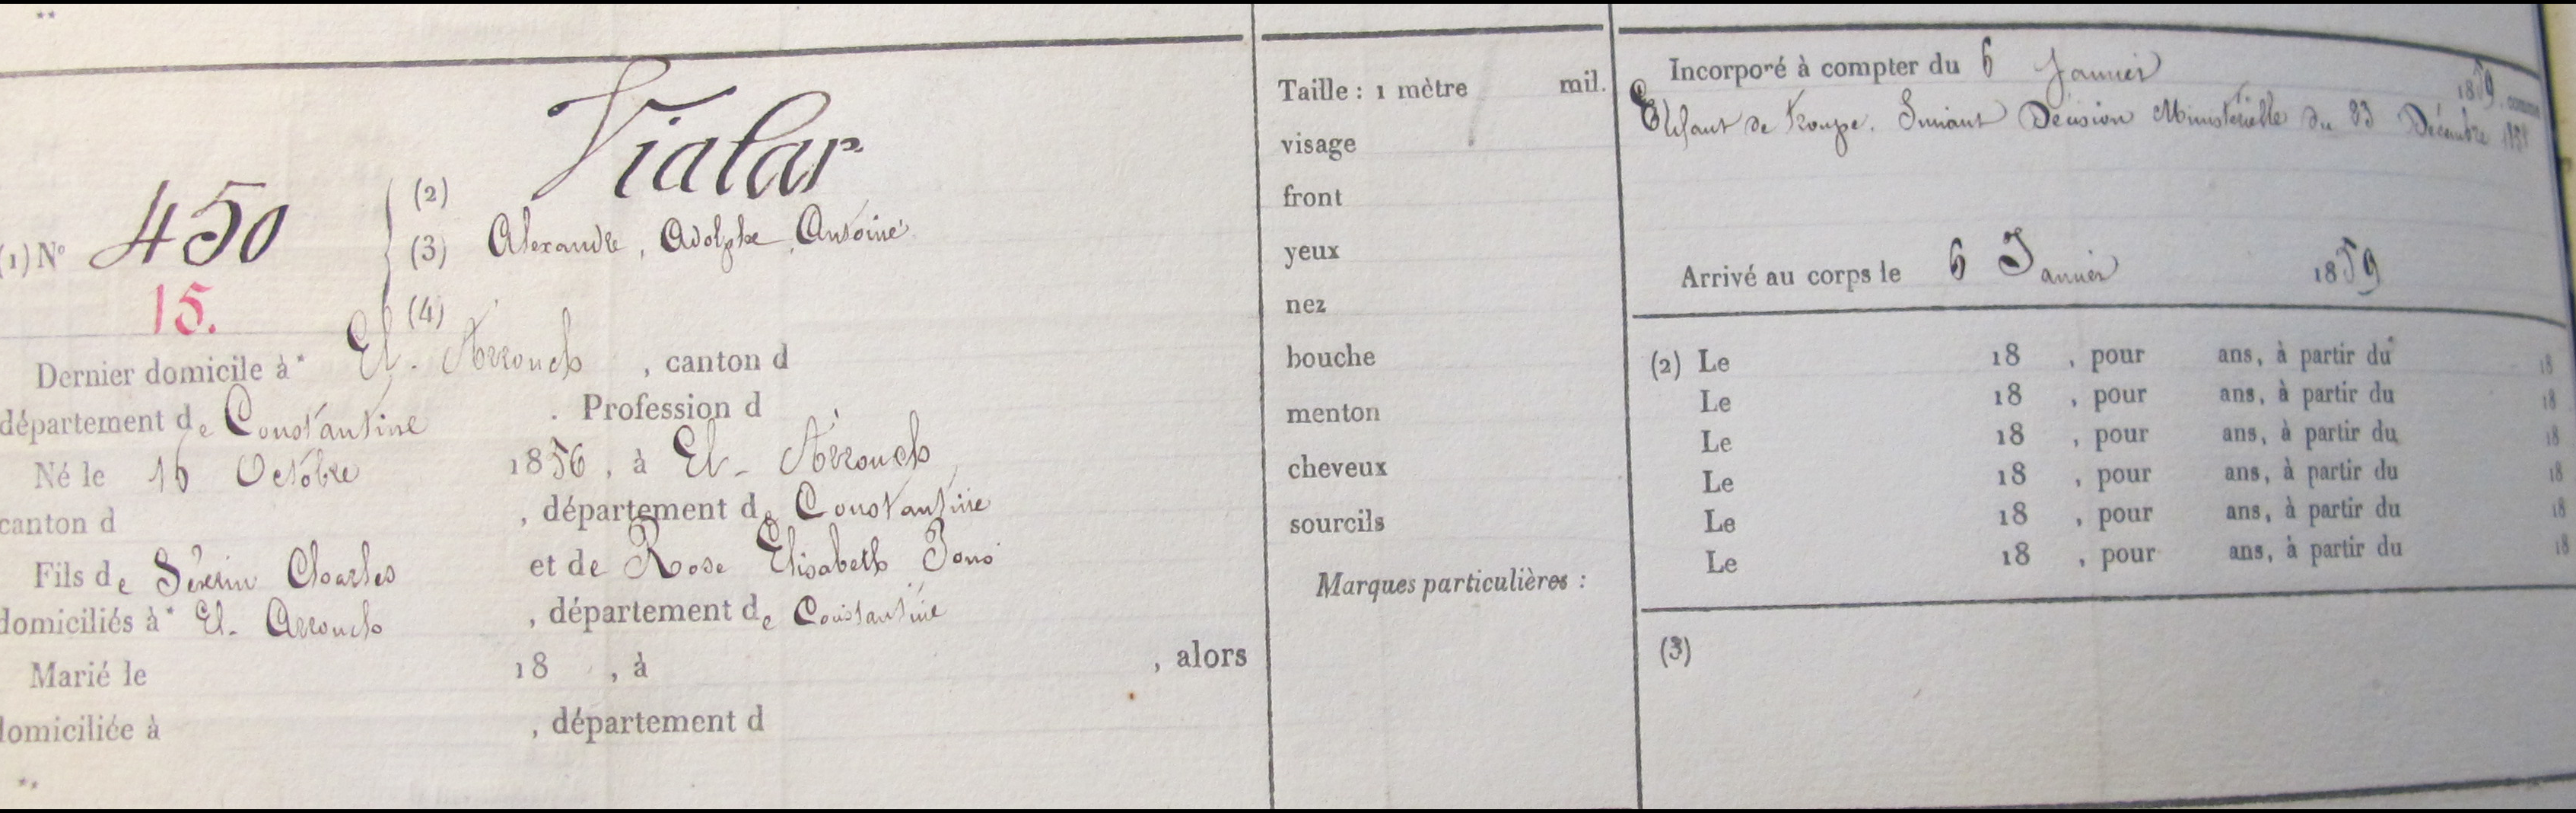 Vialar
(1) N° 450
15.
(2)
(3) Alexandre, Adolphe, Antoine
(4)
Dernier domicile à* El-Arrouch , canton d
département de Constantine . Profession d
Né le 16 Octobre 1856, à El-Arrouch
canton d , département de Constantine
Fils de Séverin Charles et de Rose Elisabeth
domiciliés à* El-Arrouch , département de Constantine
Marié le 18 , à , alors
domiciliée à , département d
Taille : 1 mètre mil.
visage
front
yeux
nez
bouche
menton
cheveux
sourcils
Marques particulières :
Incorporé à compter du 6 Janvier 1859, comme
Enfant de troupe. Suivant Décision Ministérielle du 23 Décembre 1858
Arrivé au corps le 6 Janvier 1859
(2) Le 18 , pour ans, à partir du 18
Le 18 , pour ans, à partir du 18
Le 18 , pour ans, à partir du 18
Le 18 , pour ans, à partir du 18
Le 18 , pour ans, à partir du 18
Le 18 , pour ans, à partir du 18
(3)